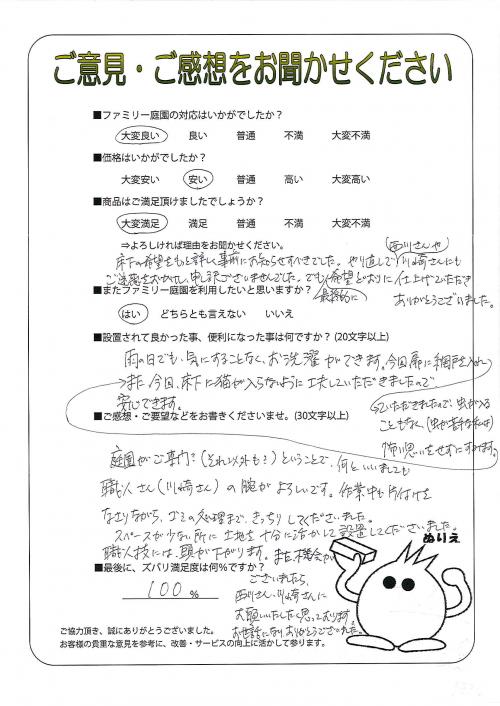 ご意見・ご感想をお聞かせください
■ファミリー庭園の対応はいかがでしたか？
大変良い 良い 普通 不満 大変不満
■価格はいかがでしたか？
大変安い 安い 普通 高い 大変高い
■商品はご満足頂けましたでしょうか？
大変満足 満足 普通 不満 大変不満
⇒よろしければ理由をお聞かせください。
床下の希望をもっと詳しく事前にお知らせすべきでした。やり直しで(西川さんや)川崎さんにも
ご迷惑をおかけし、申し訳ございませんでした。でも、希望どおりに仕上げていただき
ありがとうございました。
■またファミリー庭園を利用したいと思いますか？
最終的に
はい どちらとも言えない いいえ
■設置されて良かった事、便利になった事は何ですか？(20文字以上)
雨の日でも、気にすることなく、お洗濯ができます。今回扉に網戸を入れ
→また今回、床下に猫が入らないように工夫していただきましたので
安心できます。
ていただきましたので、虫が入る
こともなく(虫が苦手な私は)
怖い思いをせずにすみます。
■ご感想・ご要望などをお書きくださいませ。(30文字以上)
庭園がご専門？(それ以外も？)ということで、何といいましても
職人さん(川崎さん)の腕がよろしいです。作業中も片付けを
なさりながら、ゴミの処理まで、きっちりしてくださいました。
スペースが少ない所に土地を十分に活かして設置してくださいました。
職人技には、頭が下がります。また機会が
ございましたら、
西川さん、川崎さんに
お願いいたしたく思っております。
お世話になりありがとうございました。
■最後に、ズバリ満足度は何％ですか？
100 %
ぬりえ
ご協力頂き、誠にありがとうございました。
お客様の貴重な意見を参考に、改善・サービスの向上に活かして参ります。